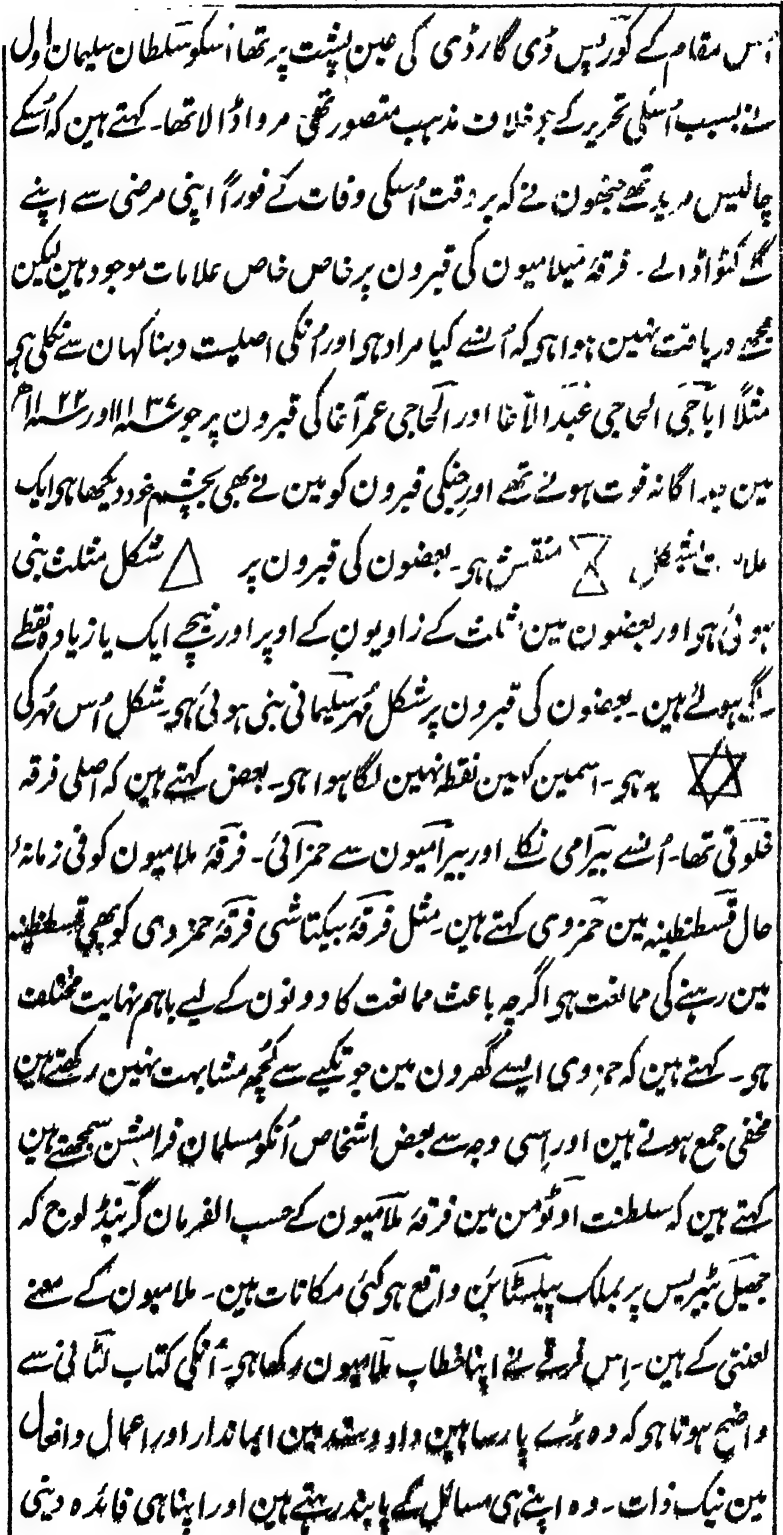 اُس مقام کے کورپس ڈی گارڈی کی عین پشت پر تھا اُسکو سلطان سلیمان اول
نے بسبب اُسکی تحریر کے جو خلاف مذہب متصور تھی مرواڈالا تھا۔ کہتے ہین کہ اُسکے
چالیس مرید تھے جنھون نے کہ بروقت اُسکی وفات کے فوراً اپنی مرضی سے اپنے
گلے کٹواڈالے۔ فرقۂ میلامیون کی قبرون پر خاص خاص علامات موجود ہین لیکن
مجھے دریافت نہین ہوا ہی کہ اُنسے کیا مراد ہی اور اُنکی اصلیت و بنا کہان سے نکلی ہی
مثلاً اباجی الحاجی عبد الآغا اور الحاجی عمر آغا کی قبرون پر جو سنہ ۱۱۳۷ اور سنہ ۱۱۲۲ ھ
مین جداگانہ فوت ہوئے تھے اور جنکی قبرون کو مین نے بھی بچشم خود دیکھا ہی ایک
علامت بشکل منقش ہی۔ بعضون کی قبرون پر △ شکل مثلث بنی
ہوئی ہی اور بعضون مین مثلث کے زاویون کے اوپر اور نیچے ایک یا زیادہ نقطے
لگے ہوئے ہین۔ بعضون کی قبرون پر شکل مُہر سلیمانی بنی ہوئی ہی۔ شکل اُس مُہر کی
✡ یہ ہی۔ اسمین کہین نقطہ نہین لگا ہوا ہی۔ بعض کہتے ہین کہ اصلی فرقہ
خلوتی تھا۔ اُنسے بیرامی نکلے اور بیرامیون سے حمزائی۔ فرقۂ ملامیون کو فی زمانۂ
حال قسطنطنیہ مین حمزوی کہتے ہین۔ مثل فرقۂ بیکتاشی فرقۂ حمزوی کو بھی قسطنطنیہ
مین رہنے کی ممانعت ہی اگرچہ باعث ممانعت کا دونون کے لیے باہم نہایت مختلف
ہی۔ کہتے ہین کہ حمزوی ایسے گھرون مین جو تکیے سے کچھ مشابہت نہین رکھتے ہین
مخفی جمع ہوتے ہین اور اِسی وجہ سے بعض اشخاص اُنکو مسلمان فرامشن سمجھتے ہین
کہتے ہین کہ سلطنت اوٹومن مین فرقۂ ملامیون کے حسب الفرمان گرینڈ لوج کہ
جھیل ٹیبریس پر بملک پیلسٹائن واقع ہی کئی مکانات ہین۔ ملامیون کے معنے
لعنتی کے ہین۔ اِس فرقے نے اپنا خطاب ملامیون رکھا ہی۔ اُنکی کتاب لثانی سے
واضح ہوتا ہی کہ وہ بڑے پارسا ہین داد وستد مین ایماندار اور اعمال وافعال
مین نیک ذات۔ وہ اپنے ہی مسائل کے پابند رہتے ہین اور اپنا ہی فائدہ دینی